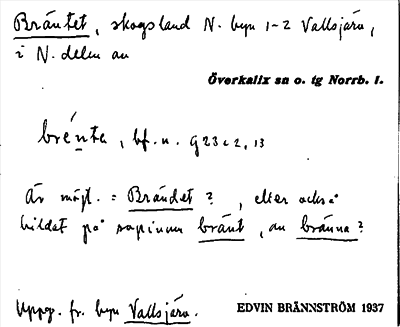 Bräntet, skogsland N. byn 1-2 Vallsjärv,
i N. delen av
Överkalix sn o. tg Norrb. l.
brénta, bf. n. G23c2,13
Är möjl. = Brändet?, eller också
bildat på supinum bränt, av bränna?
Uppg. fr. byn Vallsjärv.
EDVIN BRÄNNSTRÖM 1937